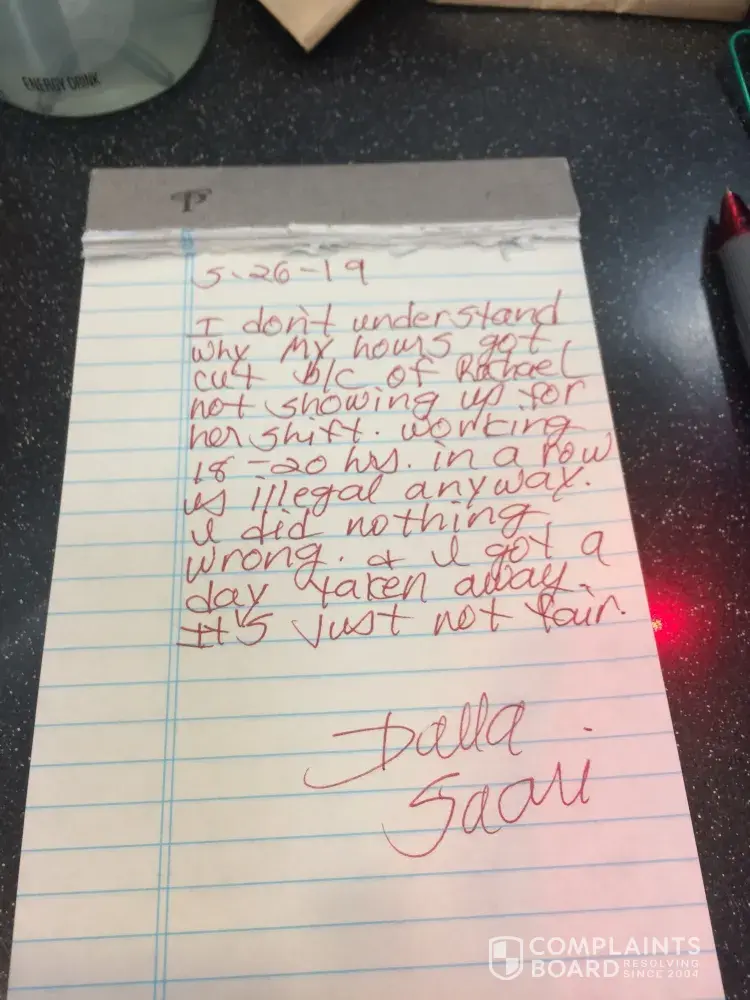 ENERGY DRINK
5-26-19
I don't understand
why my hours got
cut b/c of Rachael
not showing up for
her shift. working
18-20 hrs. in a row
is illegal anyway.
I did nothing
wrong. & I got a
day taken away.
It's just not fair.
Dalla
Saari
COMPLAINTS
BOARD RESOLVING
SINCE 2004